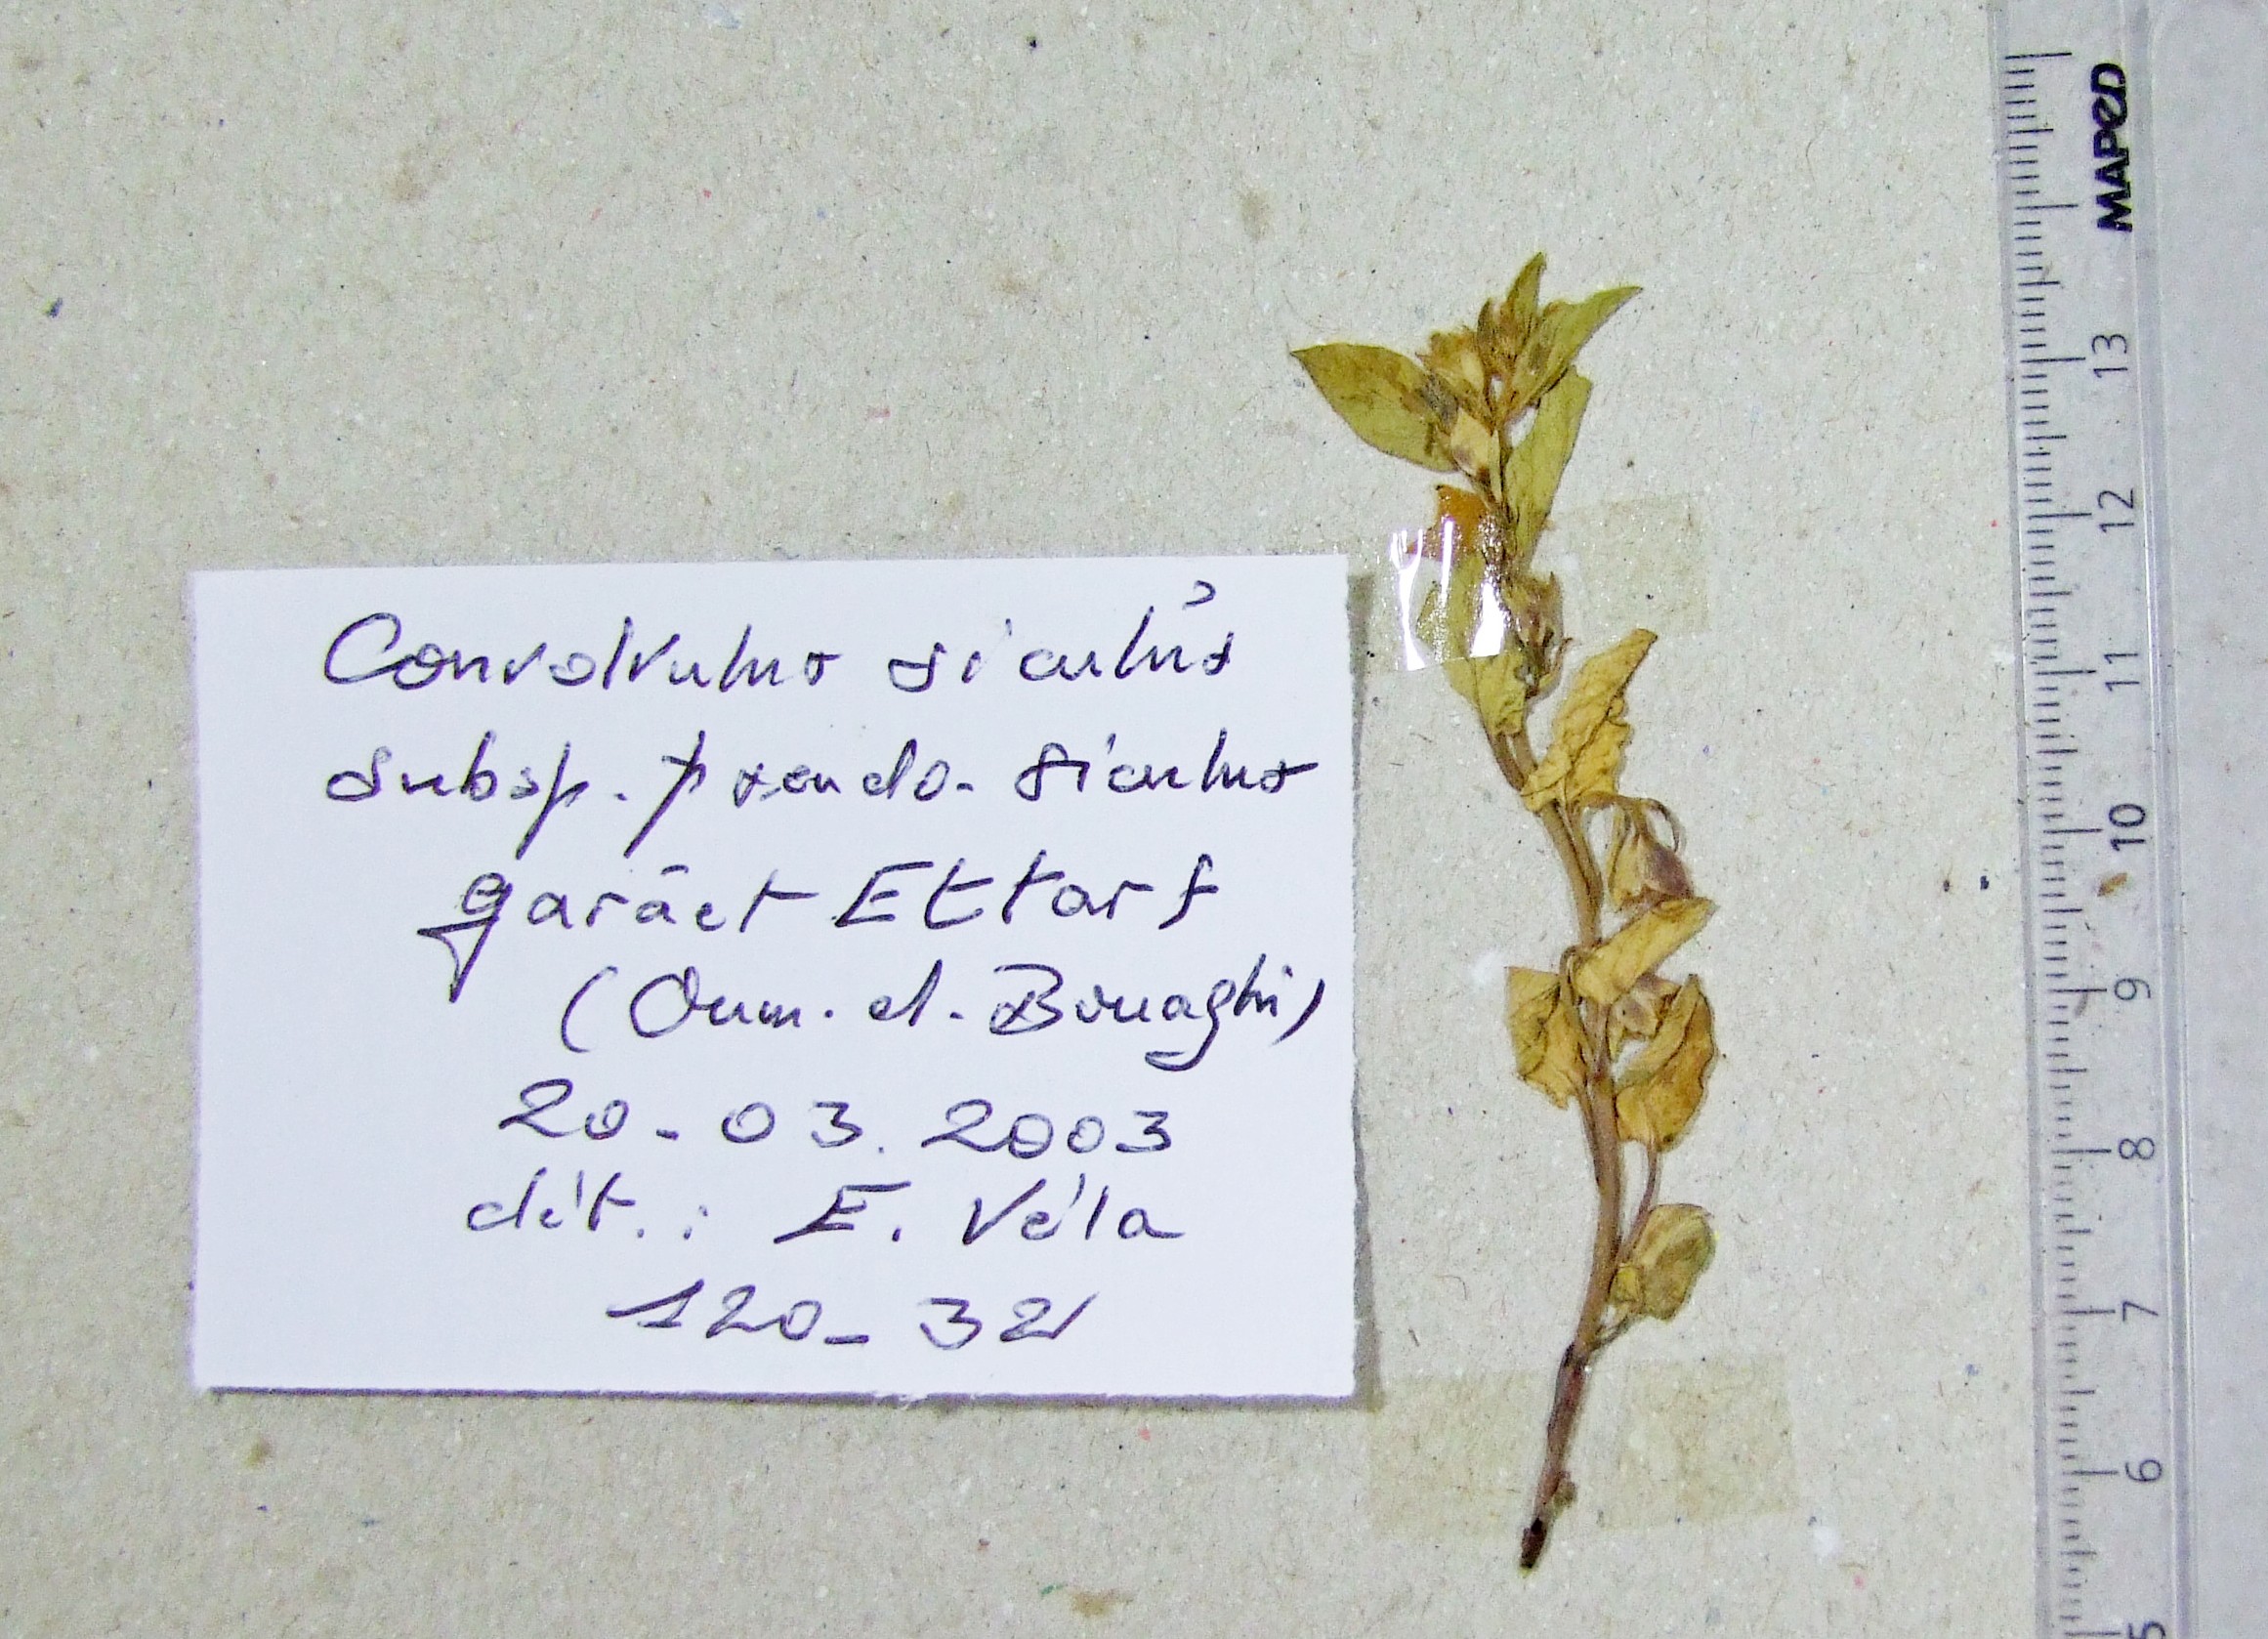 Convolvulus siculus
subsp. pseudo-siculus
garäet Ettarf
(Oum.el.Bouaghi)
20-03.2003
dét.: E. Véla
120-32
MAPED
13
12
11
10
9
8
7
6
5